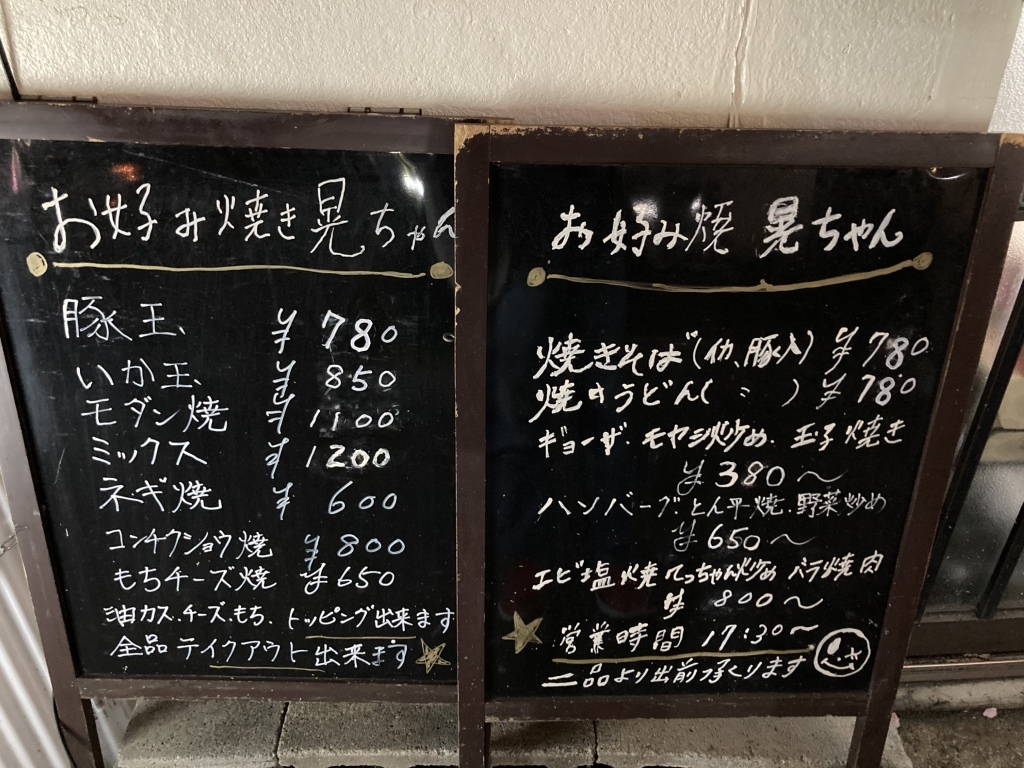 お好み焼き晃ちゃん
豚玉 ¥780
いか玉 ¥850
モダン焼 ¥1100
ミックス ¥1200
ネギ焼 ¥600
コンチクショウ焼 ¥800
もちチーズ焼 ¥650
油カス、チーズ、もち、トッピング出来ます
全品テイクアウト出来ます
お好み焼 晃ちゃん
焼きそば(イカ、豚入) ¥780
焼きうどん( 〃 ) ¥780
ギョーザ、モヤシ炒め、玉子焼き
¥380～
ハンバーグ、とん平焼、野菜炒め
¥650～
エビ塩焼 てっちゃん炒め バラ焼肉
¥800～
営業時間 17:30～
二品より出前承くります